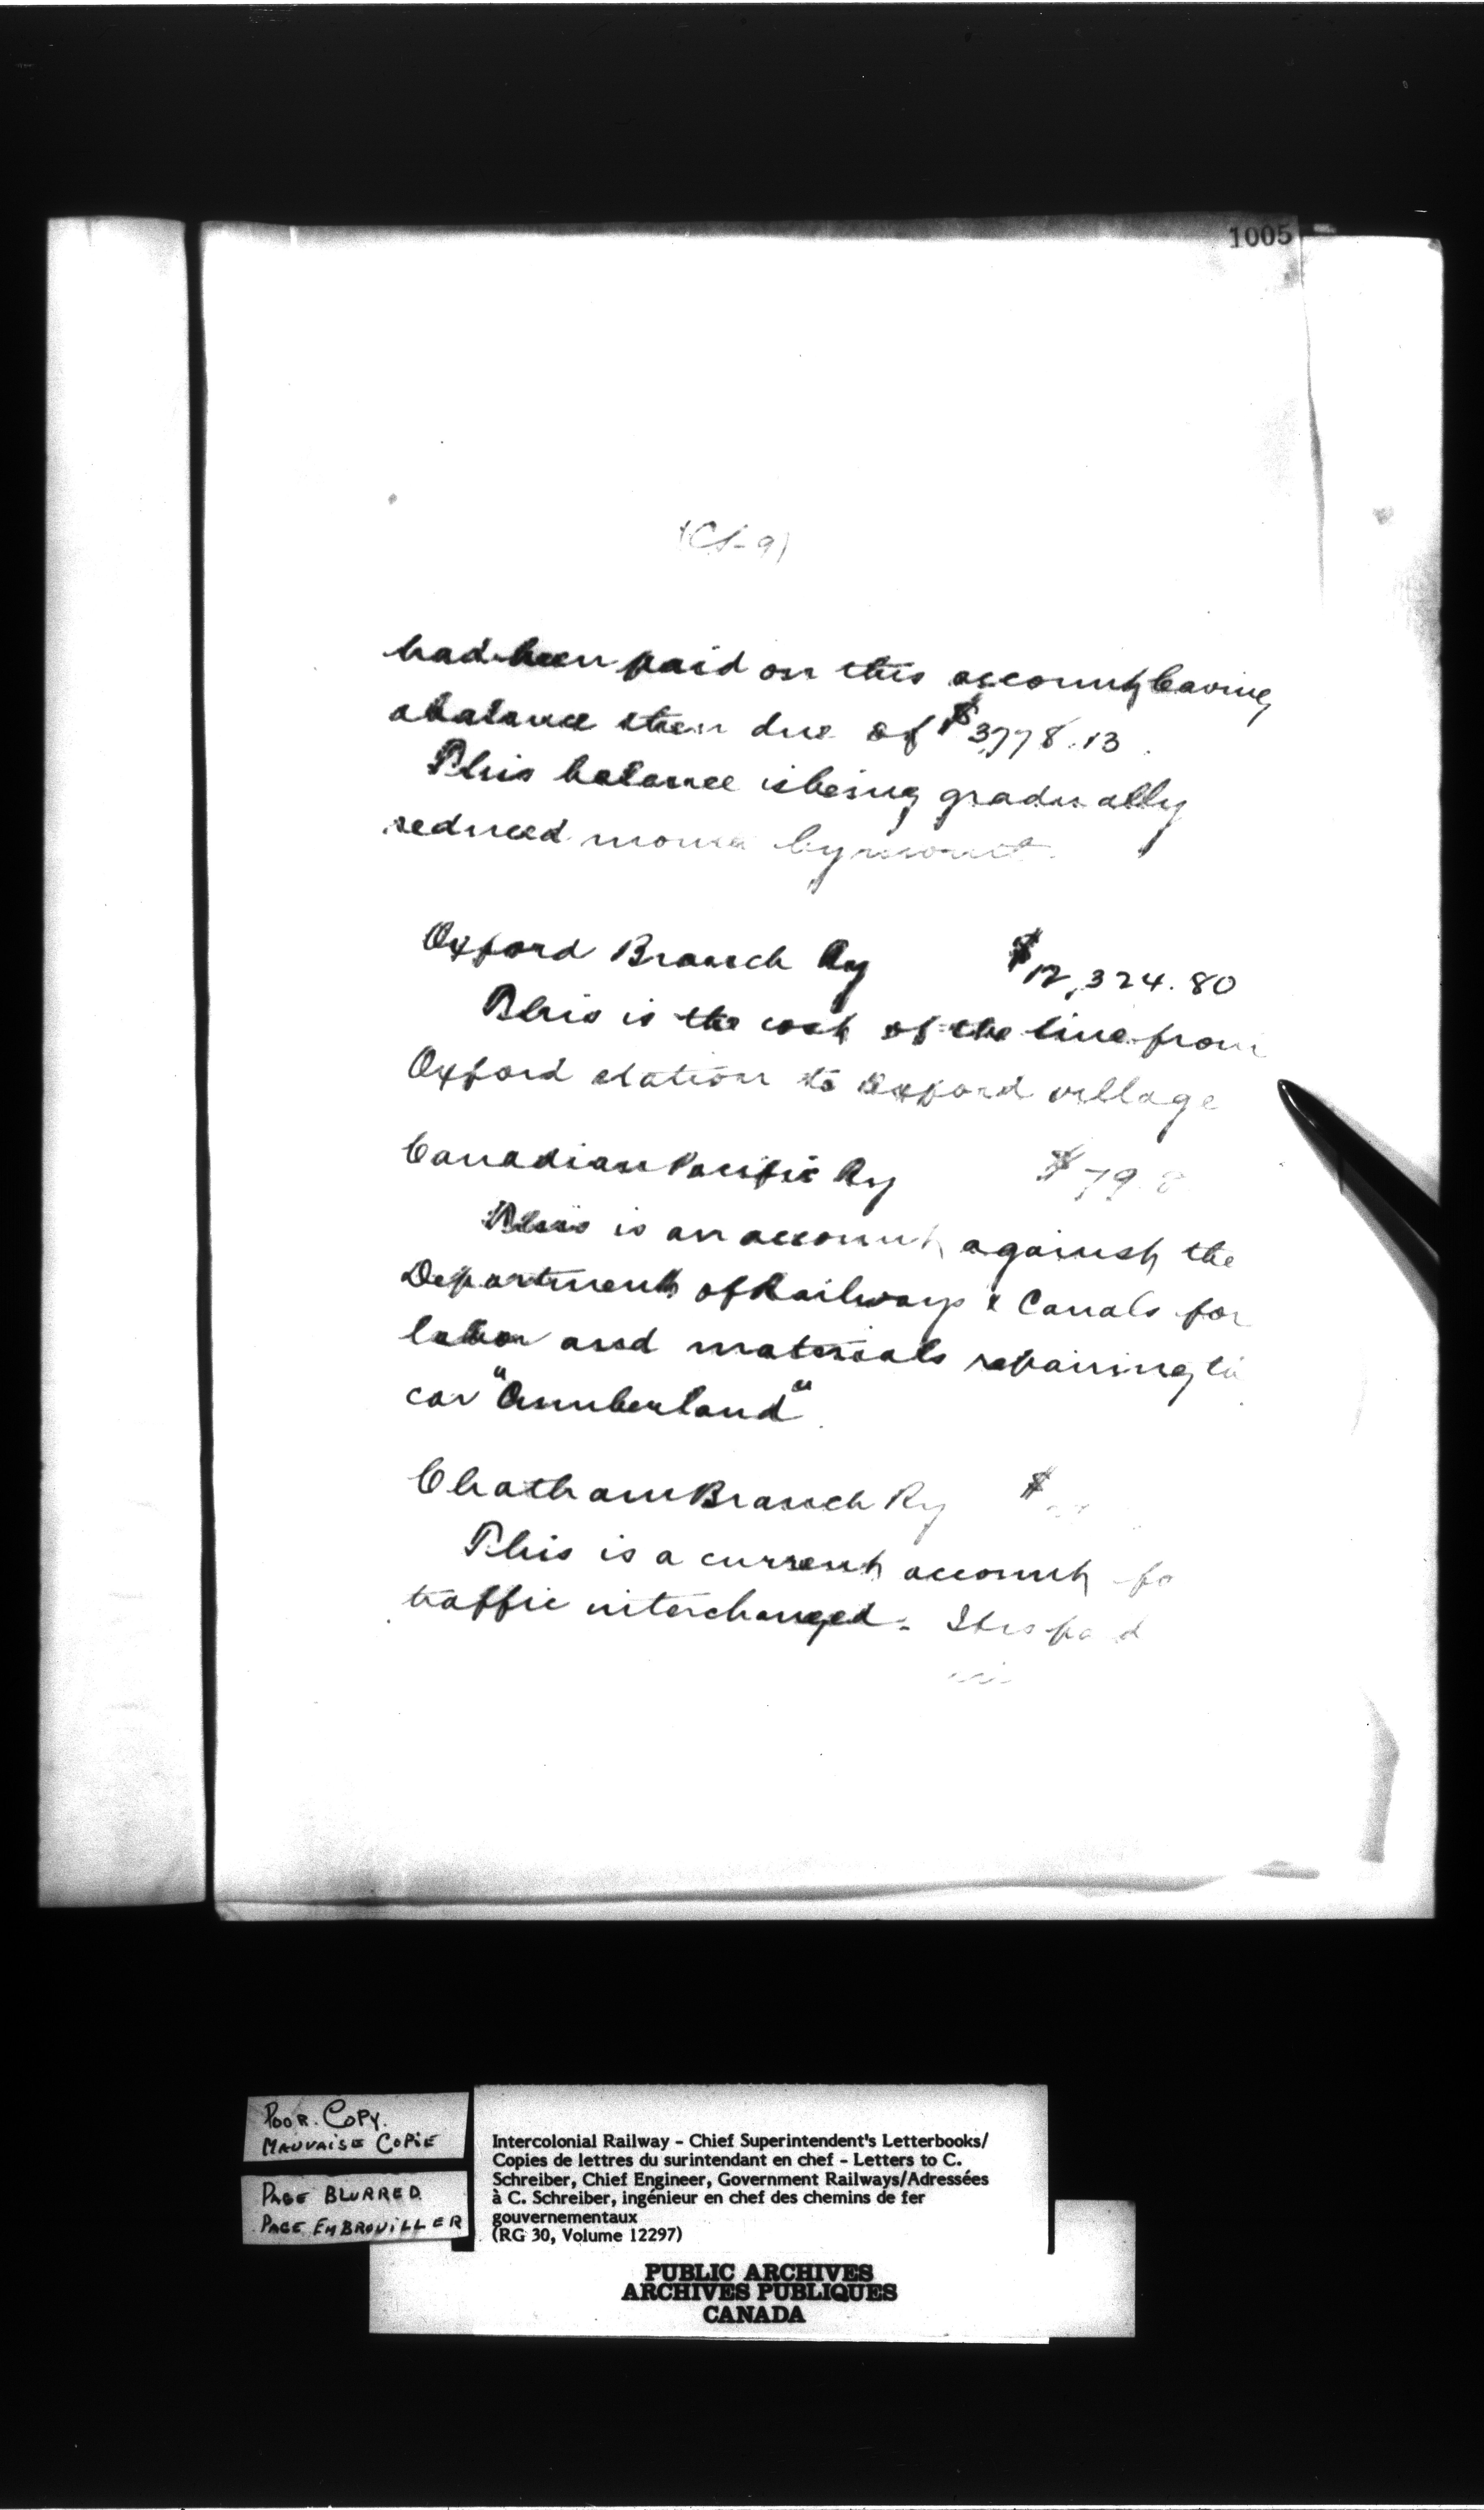 1005
had been paid on this account leaving
a balance then due of $3778.13.
This balance is being gradually
reduced month by month.
Oxford Branch Ry $12,324.80
This is the cost of the line from
Oxford station to Oxford village
Canadian Pacific Ry $79.8
This is an account against the
Department of Railways & Canals for
labor and materials repairing
car "Cumberland".
Chatham Branch Ry $
This is a current account fo
traffic interchanged. It is paid
POOR. COPY.
MAUVAISE COPIE
PAGE BLURRED
PAGE EMBROUILLER
Intercolonial Railway - Chief Superintendent's Letterbooks/
Copies de lettres du surintendant en chef - Letters to C.
Schreiber, Chief Engineer, Government Railways/Adressées
à C. Schreiber, ingénieur en chef des chemins de fer
gouvernementaux
(RG 30, Volume 12297)
PUBLIC ARCHIVES
ARCHIVES PUBLIQUES
CANADA